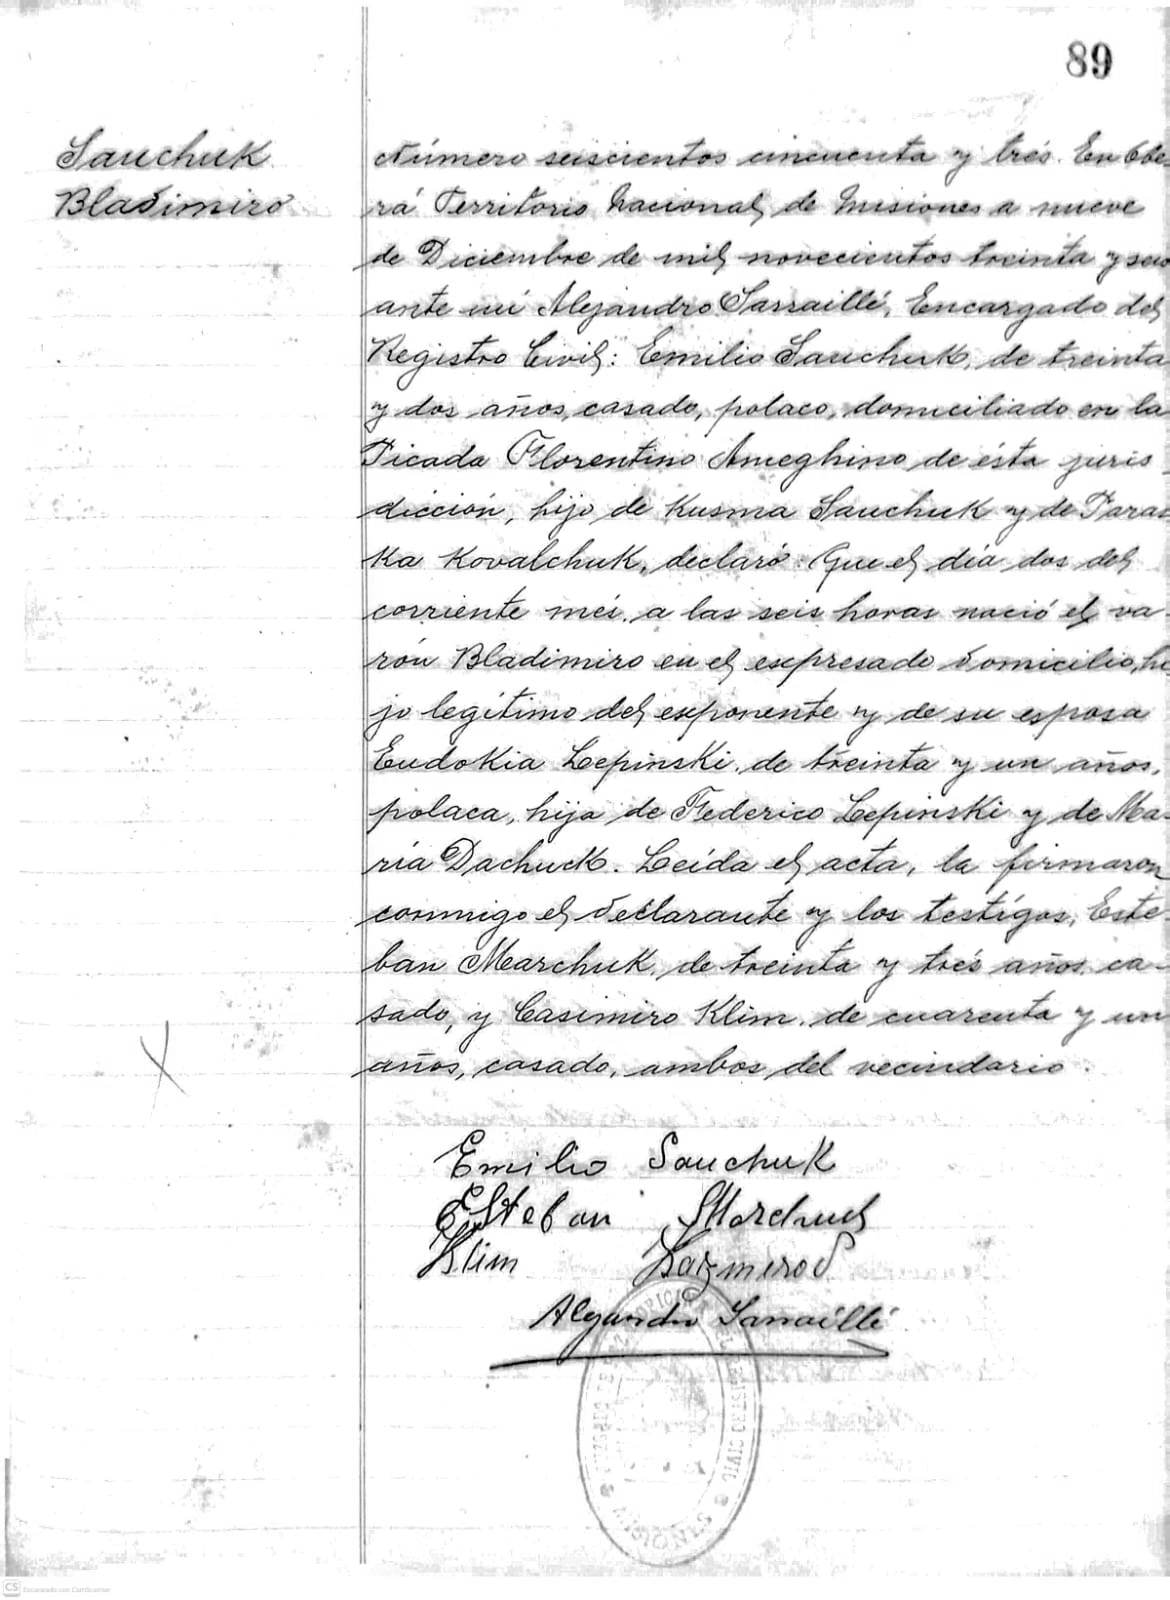 89
Sauchuk
Bladimiro
Número seiscientos cincuenta y trés. En Obe-
rá Territorio Nacional de Misiones a nueve
de Diciembre de mil novecientos treinta y seis
ante mi Alejandro Sarraillé, Encargado del
Registro Civil: Emilio Sauchuk, de treinta
y dos años, casado, polaco, domiciliado en la
Picada Florentino Ameghino de ésta juris-
dicción, hijo de Kusma Sauchuk y de Paras
ka Kovalchuk, declaró: Que el día dos del
corriente més, a las seis horas nació el va-
rón Bladimiro en el expresado domicilio, hi
jo legítimo del exponente y de su esposa
Eudokia Lepinski, de treinta y un años,
polaca, hija de Federico Lepinski y de Ma-
ría Dachuck. Leída el acta, la firmaron
conmigo el declarante y los testígos, Este-
ban Marchuk, de treinta y trés años, ca-
sado, y Casimiro Klim, de cuarenta y un
años, casado, ambos del vecindario.
Emilio Sauchuk
Esteban
Klim
Alejandro Sarraillé
REGISTRO CIVIL
MISIONES
CS Escaneado con CamScanner